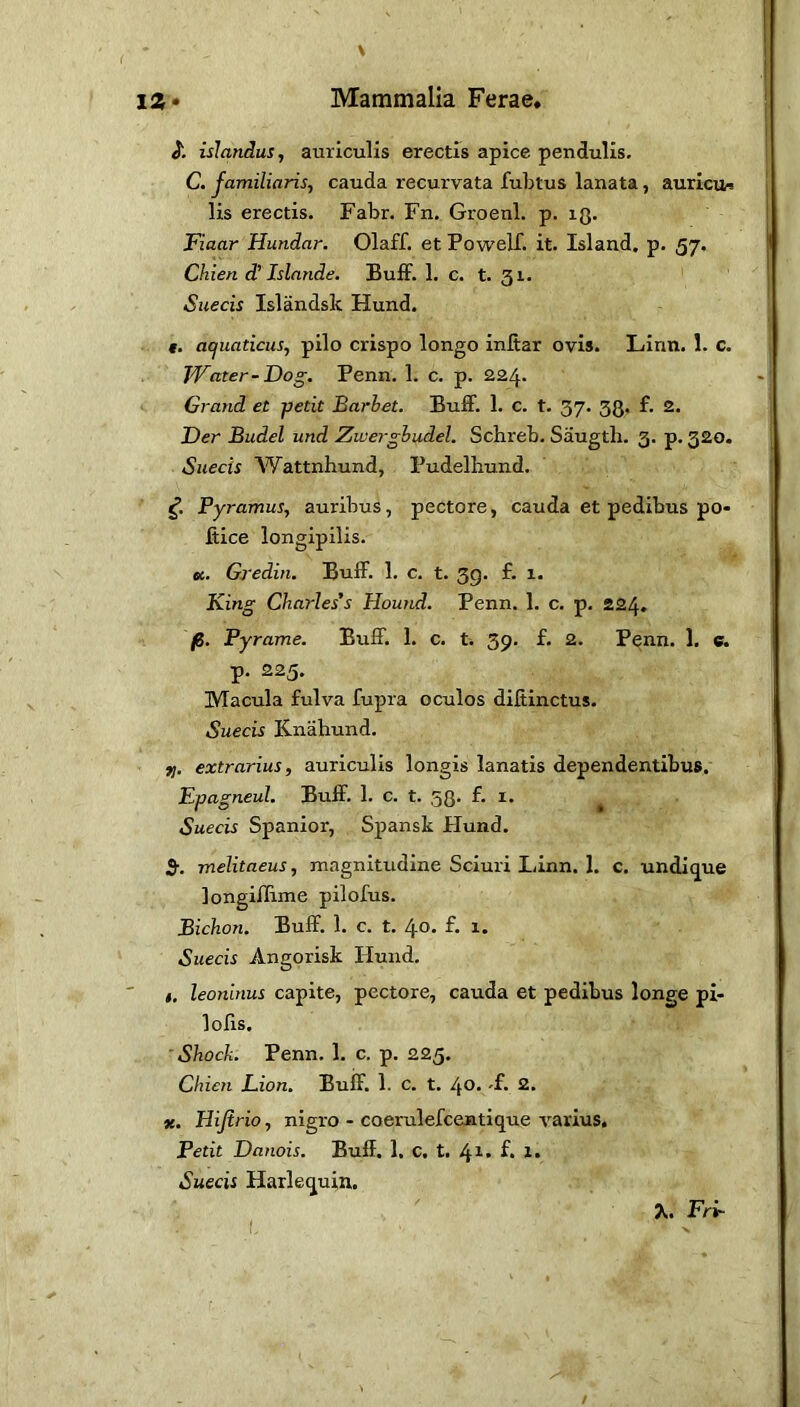 12 • Mammalia Ferae.
δ. islandus, auriculis erectis apice pendulis.
C. familiaris, cauda recurvata ſubtus lanata, auricu-
lis erectis. Fabr. Fn. Groenl. p. 18.
Fiaar Hundar. Olaff. et Powelf. it. Island. p. 57.
Chien d'Islande. Buff. l. c. t. 31.
Suecis Isländsk Hund.
ε. aquaticus, pilo crispo longo inſtar ovis. Linn. l. c.
Water-Dog. Penn. l. c. p. 224.
Grand et petit Barbet. Buff. l. c. t. 37. 38. f. 2.
Der Budel und Zwergbudel. Schreb. Säugth. 3. p. 320.
Suecis Wattnhund, Pudelhund.
ζ. Pyramus, auribus, pectore, cauda et pedibus po-
ſtice longipilis.
α. Gredin. Buff. l. c. t. 39. f. 1.
King Charles's Hound. Penn. l. c. p. 224.
β. Pyrame. Buff. l. c. t. 39. f. 2. Penn. l. c.
p. 225.
Macula fulva ſupra oculos diſtinctus.
Suecis Knähund.
η. extrarius, auriculis longis lanatis dependentibus.
Epagneul. Buff. l. c. t. 38. f. 1.
Suecis Spanior, Spansk Hund.
ϑ. melitaeus, magnitudine Sciuri Linn. l. c. undique
longiſſime piloſus.
Bichon. Buff. l. c. t. 40. f. 1.
Suecis Angorisk Hund.
ι. leoninus capite, pectore, cauda et pedibus longe pi-
loſis.
Shock. Penn. l. c. p. 225.
Chien Lion. Buff. l. c. t. 40. f. 2.
κ. Hiſtrio, nigro - coeruleſcentique varius.
Petit Danois. Buff. l. c. t. 41. f. 1.
Suecis Harlequin.
λ. Fri-